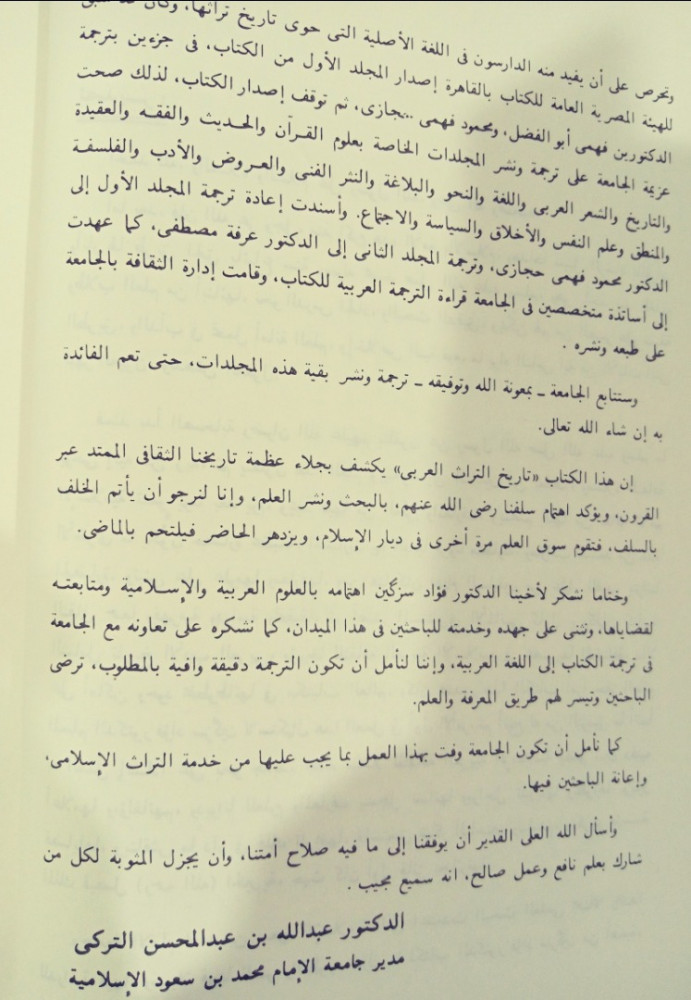 ونحرص على أن يفيد منه الدارسون فى اللغة الأصلية التى حوى تاريخ تراثها، وكان
للهيئة المصرية العامة للكتاب بالقاهرة إصدار المجلد الأول من الكتاب، فى جزءين بترجمة
الدكتورين فهمى أبو الفضل، ومحمود فهمى حجازى، ثم توقف إصدار الكتاب، لذلك صحت
عزيمة الجامعة على ترجمة ونشر المجلدات الخاصة بعلوم القرآن والحديث والفقه والعقيدة
والتاريخ والشعر العربى واللغة والنحو والبلاغة والنثر الفنى والعروض والأدب والفلسفة
والمنطق وعلم النفس والأخلاق والسياسة والاجتماع. وأسندت إعادة ترجمة المجلد الأول إلى
الدكتور محمود فهمى حجازى، وترجمة المجلد الثانى إلى الدكتور عرفة مصطفى، كما عهدت
إلى أساتذة متخصصين فى الجامعة قراءة الترجمة العربية للكتاب، وقامت إدارة الثقافة بالجامعة
على طبعه ونشره .
وستتابع الجامعة ـ بمعونة الله وتوفيقه ـ ترجمة ونشر بقية هذه المجلدات، حتى تعم الفائدة
به إن شاء الله تعالى.
إن هذا الكتاب «تاريخ التراث العربى» يكشف بجلاء عظمة تاريخنا الثقافى الممتد عبر
القرون، ويؤكد اهتمام سلفنا رضى الله عنهم، بالبحث ونشر العلم، وإنا لنرجو أن يأتم الخلف
بالسلف، فتقوم سوق العلم مرة أخرى فى ديار الإسلام، ويزدهر الحاضر فيلتحم بالماضى.
وختاما نشكر لأخينا الدكتور فؤاد سزگين اهتمامه بالعلوم العربية والإسلامية ومتابعته
لقضاياها، ونثنى على جهده وخدمته للباحثين فى هذا الميدان، كما نشكره على تعاونه مع الجامعة
فى ترجمة الكتاب إلى اللغة العربية، وإننا لنأمل أن تكون الترجمة دقيقة وافية بالمطلوب، ترضى
الباحثين وتيسر لهم طريق المعرفة والعلم.
كما نأمل أن تكون الجامعة وفت بهذا العمل بما يجب عليها من خدمة التراث الإسلامى،
وإعانة الباحثين فيها.
وأسأل الله العلى القدير أن يوفقنا إلى ما فيه صلاح أمتنا، وأن يجزل المثوبة لكل من
شارك بعلم نافع وعمل صالح، انه سميع مجيب .
الدكتور عبدالله بن عبدالمحسن التركى
مدير جامعة الإمام محمد بن سعود الإسلامية